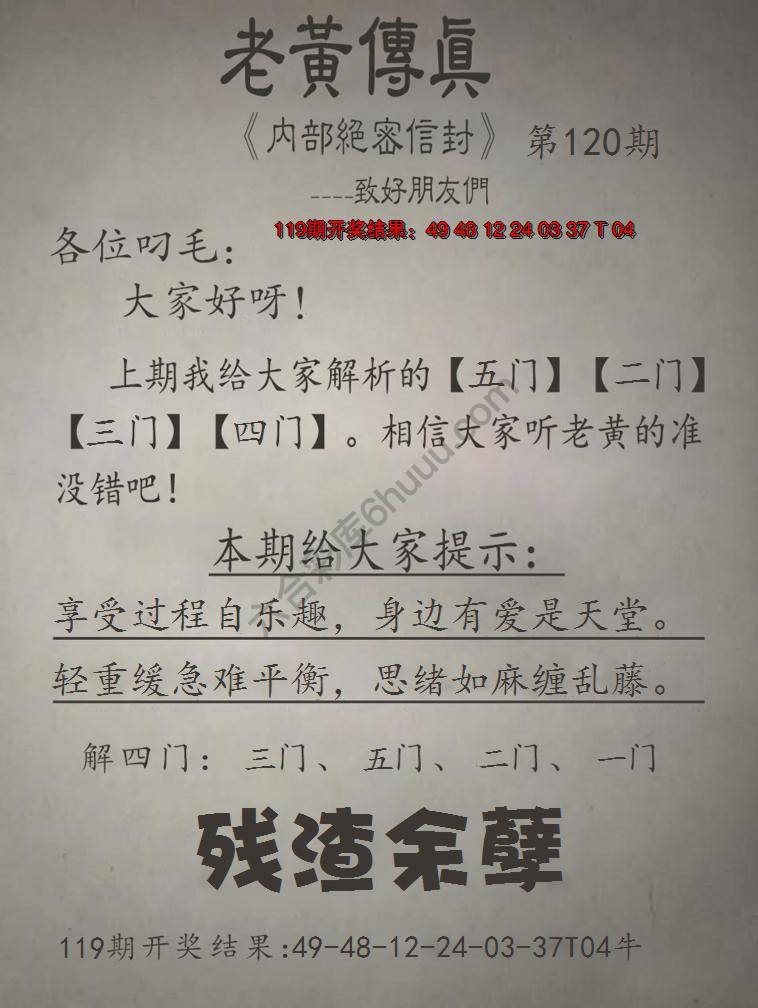 老黃傳眞
《内部絕密信封》 第120期
----致好朋友們
119期开奖结果：49 48 12 24 03 37 T 04
各位叼毛：
大家好呀！
上期我给大家解析的【五门】【二门】
【三门】【四门】。相信大家听老黄的准
没错吧！
本期给大家提示：
享受过程自乐趣，身边有爱是天堂。
轻重缓急难平衡，思绪如麻缠乱藤。
解四门：三门、五门、二门、一门
残渣余孽
119期开奖结果:49-48-12-24-03-37T04牛
六合彩库6huuu.com